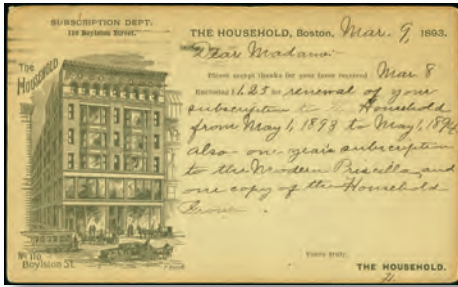 SUBSCRIPTION DEPT:
110 Boylston Street.
THE HOUSEHOLD, Boston, Mar. 9, 1893.
Dear Madam:
Please accept thanks for your favor received Mar 8
Enclosing $1.25 for renewal of your
subscription to the Household
from May 1, 1893 to May 1, 1894
also one year's subscription
to the Modern Priscilla, and
one copy of the Household
Yours truly,
THE HOUSEHOLD.
H.
The
HOUSEHOLD
No 110
Boylston St.